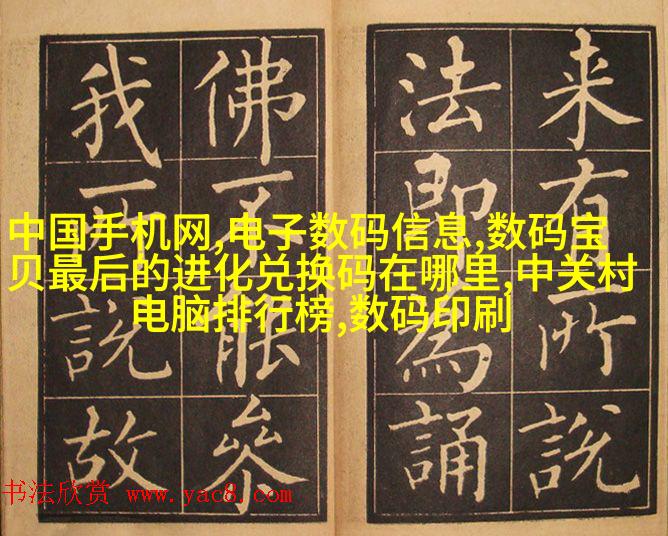 来有所說
法即為誦
佛不能叅
我所說故
中国手机网,电子数码信息,数码宝
贝最后的进化兑换码在哪里,中关村
电脑排行榜,数码印刷
书法欣赏 www.yac8.com